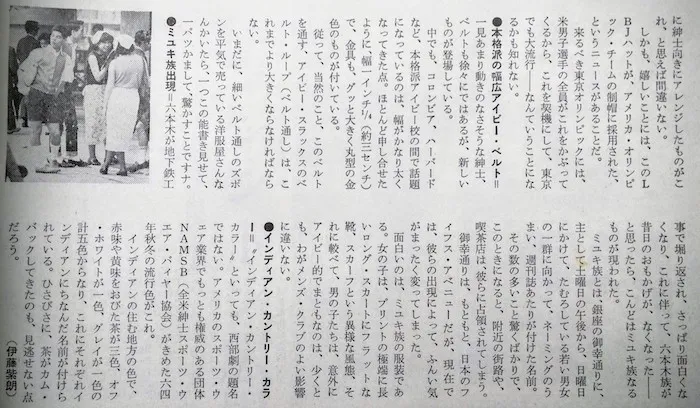 に紳士向きにアレンジしたものがこ
れ、と思えば間違いない。
しかも、嬉しいことには、このL
BJハットが、アメリカ・オリンピ
ック・チームの制帽に採用された、
というニュースがあることだ。
来るべき東京オリンピックには、
米男子選手の全員がこれをかぶって
くるから、これを契機にして、東京
でも大流行――なんていうことにな
るかも知れない。
●本格派の幅広アイビー・ベルト＝
一見あまり動きのなさそうな紳士、
ベルトも徐々にではあるが、新しい
ものが登場している。
中でも、コロンビア、ハーバード
など、本格派アイビー校の間で話題
になっているのは、幅がかなり太く
なってきた点。ほとんど申し合せた
ように、幅一インチ1/4（約三センチ）
で、金具も、グッと大きく丸型の金
色のものが付いている。
従って、当然のこと、このベルト
を通す、アイビー・スラックスのベ
ルト・ループ（ベルト通し）は、こ
れまでより大きくならなければなら
ない。
いまだに、細いベルト通しのズボ
ンを平気で売っている洋服屋さんな
んかいたら、一つこの能書き見せて、
一パツかまして、驚かすことですナ。
●ミユキ族出現＝六本木が地下鉄工
事で堀り返され、さっぱり面白くな
くなり、これに伴って、六本木族が
昔日のおもかげが、なくなった――
と思ったら、こんどはミユキ族なる
ものが現われた。
ミユキ族とは、銀座の御幸通りに、
主として土曜日の午後から、日曜日
にかけて、たむろしている若い男女
の一群に向かって、ネーミングのう
まい、週刊誌あたりが付けた名前。
その数の多いこと驚くばかりで、
このときになると、附近の街路や、
喫茶店は彼らに占領されてしまう。
御幸通りは、もともと、日本のフ
ィフス・アベニューだが、現在で
は、彼らの出現によって、ふんい気
がまったく変ってしまった。
面白いのは、ミユキ族の服装であ
る。女の子は、プリントの極端に長
いロング・スカートにフラットな
靴、スカーフという異様な風態、そ
れに較べて、男の子たちは、意外に
アイビー的でまともなのは、少くと
も、わがメンズ・クラブのよい影響
に違いない。
●インディアン・カントリー・カラ
ー＝〝インディアン・カントリー・
カラー〟といっても、西部劇の題名
ではない。アメリカのスポーツ・ウ
エア業界でもっとも権威のある団体
NAMSB（全米紳士スポーツ・ウ
エア・バイヤー協会）がきめた六四
年秋冬の流行色がこれ。
インディアンの住む地方の色で、
赤味や黄味をおびた茶が三色、オフ
・ホワイトが一色、グレイが一色の
計五色からなり、これにそれぞれイ
ンディアンにちなんだ名前が付けら
れている。ひさびさに、茶がカム・
バックしてきたのも、見逃せない点
だろう。
（伊藤紫朗）